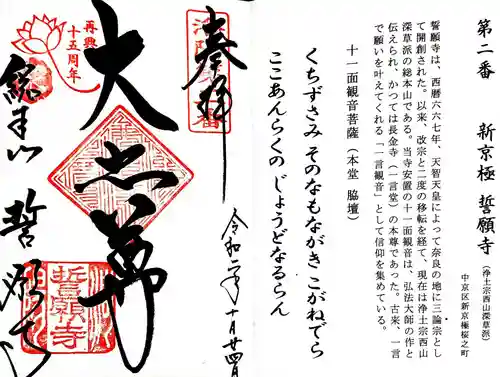 第二番　新京極　誓願寺（浄土宗西山深草派）
中京区新京極桜之町
誓願寺は、西暦六六七年、天智天皇によって奈良の地に三論宗とし
て開創された。以来、改宗と二度の移転を経て、現在は浄土宗西山
深草派の総本山である。当寺安置の十一面観音は、弘法大師の作と
伝えられ、かつては長金寺（一言堂）の本尊であった。古来、一言
で願いを叶えてくれる「一言観音」として信仰を集めている。
十一面観音菩薩（本堂　脇壇）
くちずさみ そのなもながき こがねでら
ここあんらくの じょうどなるらん
奉拝
令和二年十月廿四日
大悲尊
再興
十五周年
総本山 誓願寺
誓願寺